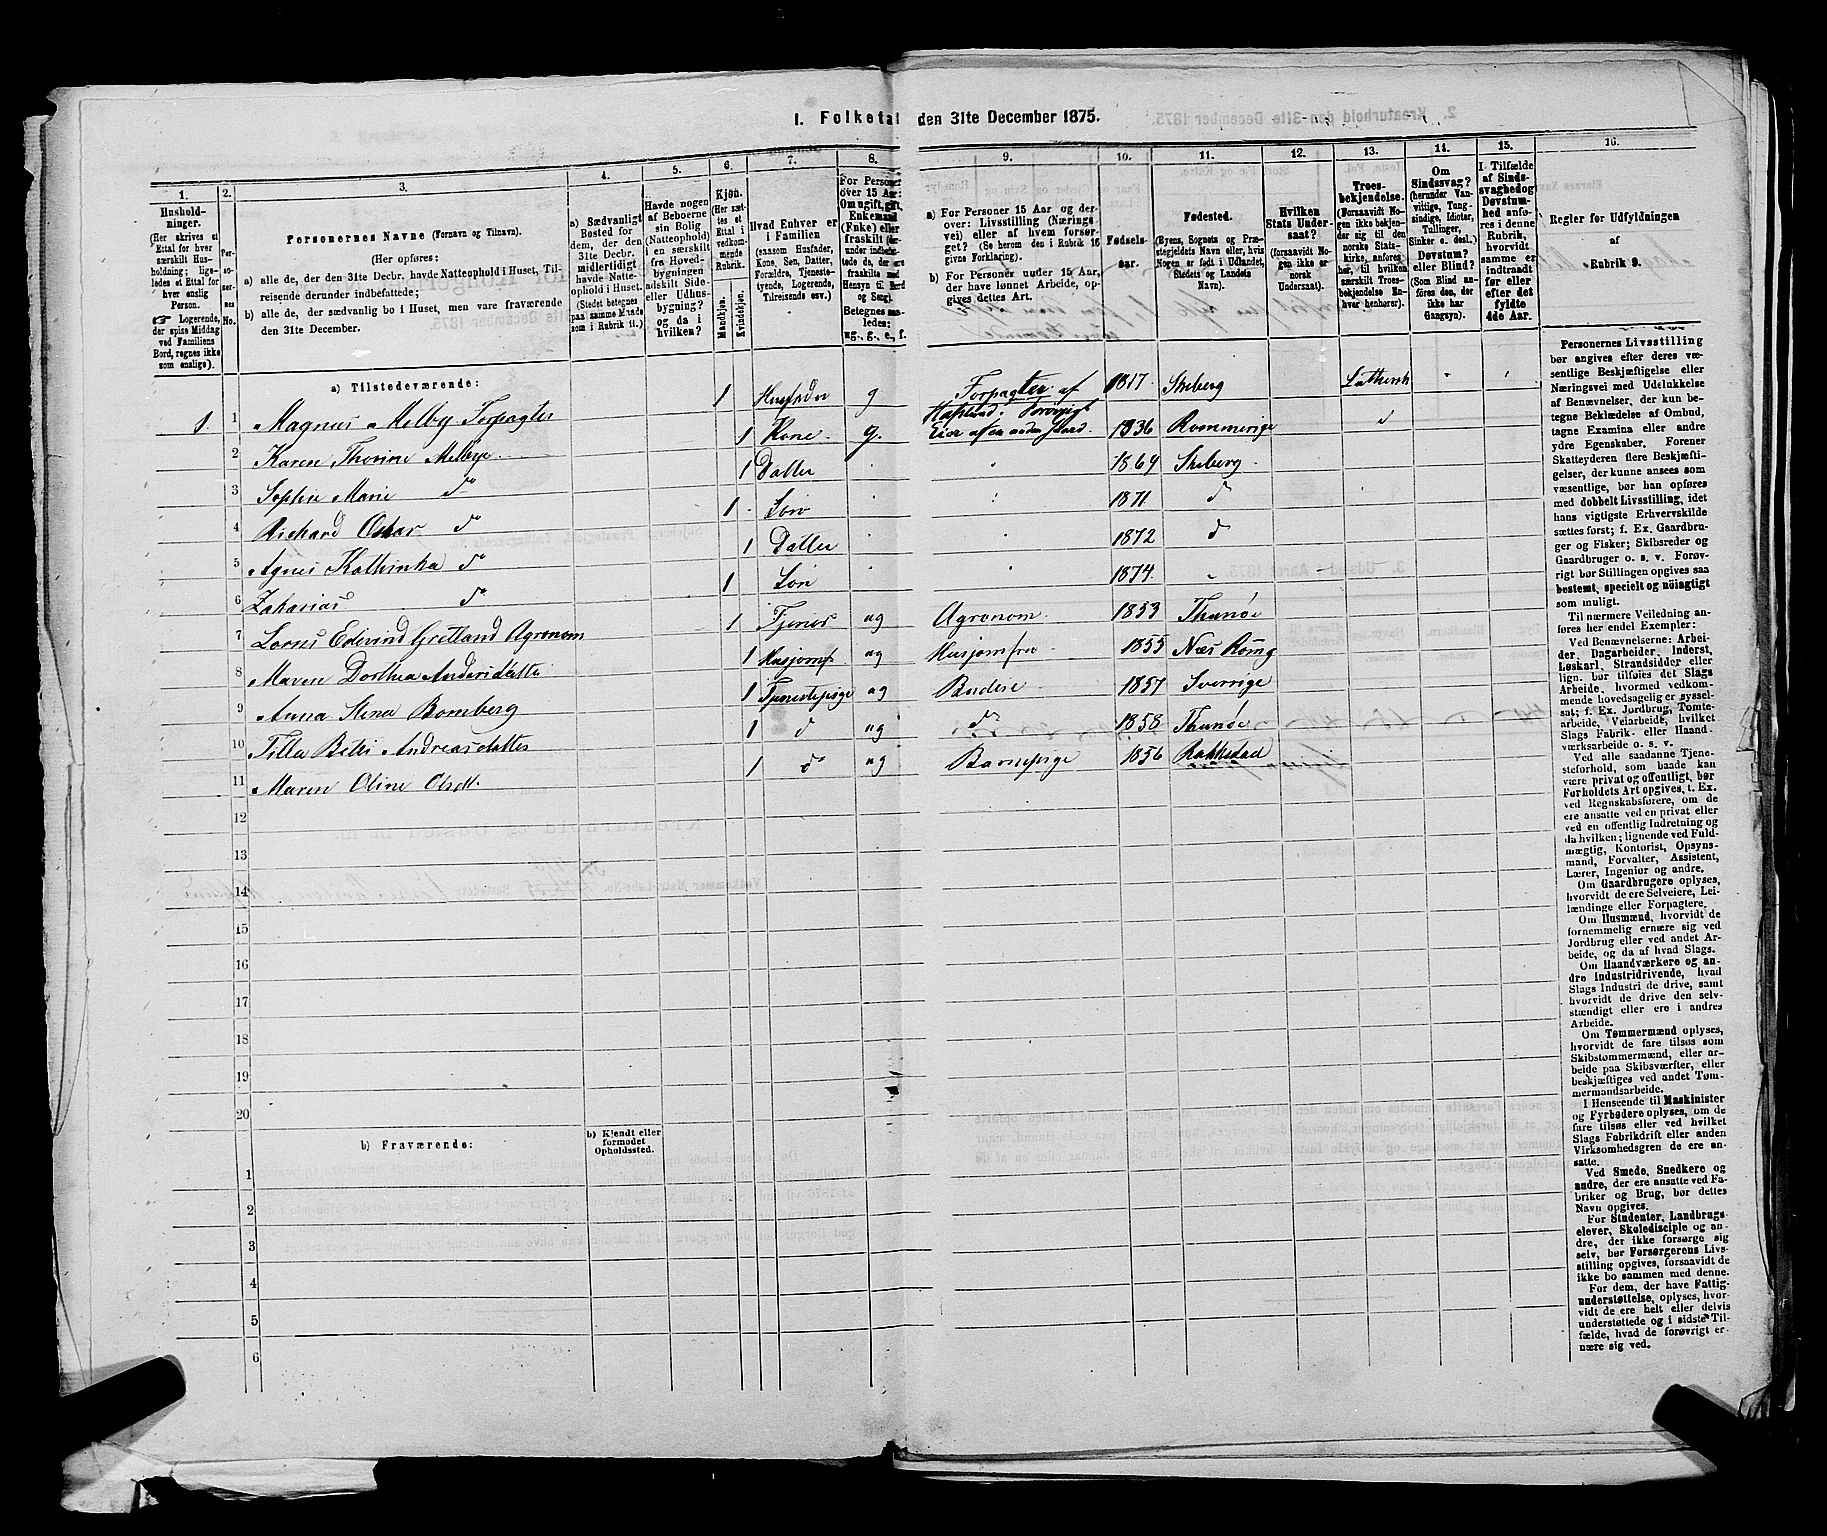 1. Folketal den 31te December 1875.
1. Husholdninger. (Her skrives et Ettal for hver særskilt Husholdning; ligeledes et Ettal for hver enslig Person. Logerende, der spise Middag ved Familiens Bord, regnes ikke som enslige).
2. Personernes No.
3. Personernes Navne (Fornavn og Tilnavn).
(Her opføres:
a) alle de, der den 31te Decbr. havde Natteophold i Huset, Tilreisende derunder indbefattede;
b) alle de, der sædvanlig bo i Huset, men vare fraværende den 31te December.
4. a) Sædvanligt Bosted for dem, der den 31te Decbr. midlertidigt havde Natteophold i Huset. (Stedet betegnes paa samme Maade som i Rubrik 11.).
5. Havde nogen af Beboerne sin Bolig (Natteophold) i en særskilt fra Hovedbygningen adskilt Side- eller Udhusbygning? og da i hvilken?
6. Kjøn. (Her sættes et Ettal i vedkommende Rubrik.
Mandkjøn. Kvindekjøn.
7. Hvad Enhver er i Familien (saasom Husfader, Kone, Søn, Datter, Forældre, Tjenestetyende, Logerende, Tilreisende osv.)
8. For Personer over 15 Aar: Om ugift, gift, Enkemand (Enke) eller fraskilt (derunder indbefattede de, der ere fraskilte med Hensyn til Bord og Seng). Betegnes saaledes: ug., g., e., f.
9. a) For Personer 15 Aar og derover: Livsstilling (Næringsvei) eller af hvem forsørget? (Se herom den i Rubrik 16 givne Forklaring).
b) For Personer under 15 Aar, der have lønnet Arbeide, opgives dettes Art.
10. Fødselsaar.
11. Fødested. (Byens, Sognets og Præstegjeldets Navn eller, hvis Nogen er født i Udlandet, Stedets og Landets Navn).
12. Hvilken Stats Undersaat? (forsaavidt Nogen ikke er norsk Undersaat).
13. Troesbekjendelse. (Forsaavidt Nogen ikke bekjender sig til den norske Statskirke, anføres her, til hvilken særskilt Troesbekjendelse Enhver henhører).
14. Om Sindssvag? (herunder Vanvittige, Tungsindige, Idioter, Tullinger, Sinker o. desl.). Døvstum? eller Blind? (Som Blind anføres den, der ikke har Gangsyn).
15. I Tilfælde af Sindssvaghed og Døvstumhed anføres i denne Rubrik, hvorvidt samme er indtraadt før eller efter det fyldte 4de Aar.
16. Regler for Udfyldningen af Rubrik 9.
a) Tilstedeværende:
1 1 Magnus Melby Forpagter 1 Husfader g Forpagter af Hafslund. Forøvrigt Eier af en anden Gaard. 1817 Skiberg Luthersk
2 Karen Thorine Melbye 1 Kone g. 1836 Rommerige d
3 Sophie Marie do 1 Datter 1864 Skiberg
4 Richard Oskar do 1 Søn 1871 d
5 Agnes Kathinka do 1 Datter 1872 d
6 Zakarias do 1 Søn 1874
7 Lorns Edevind Gretland Agronom 1 Tjener ug Agronom 1853 Thunøe
8 Maren Dorthea Andersdatter 1 Husjomfr ug Husjomfru 1855 Næs Romg
9 Anna Stena Bomberg 1 Tjenestepige ug Budeie 1857 Sverrige
10 Tilla Betsi Andreasdatter 1 d ug do 1858 Thunøe
11 Maren Oline Olsdt. 1 do ug Barnepige 1856 Rakkestad
12
13
14
15
16
17
18
19
20
b) Fraværende:
b) Kjendt eller formodet Opholdssted.
1
2
3
4
5
6
Personernes Livsstilling
bør angives efter deres væ-
sentlige Beskjæftigelse eller
Næringsvei med Udelukkelse
af Benævnelser, der kun be-
tegne Beklædelse af Ombud,
tagne Examina eller andre
ydre Egenskaber. Forener
Skatteyderen flere Beskjæfti-
gelser, der kunne ansees som
væsentlige, bør han opføres
med dobbelt Livsstilling, idet
hans vigtigste Erhvervskilde
sættes først; f. Ex. Gaardbru-
ger og Fisker; Skibsreder og
Gaardbruger o. s. v. Forøv-
rigt bør Stillingen opgives saa
bestemt, specielt og nøiagtigt
som muligt.
Til nærmere Veiledning an-
føres her endel Exempler:
Ved Benævnelserne: Arbei-
der, Dagarbeider, Inderst,
Løskarl, Strandsidder eller
lign. bør tilføies det Slags
Arbeide, hvormed vedkom-
mende hovedsagelig er syssel-
sat; f. Ex. Jordbrug, Tomte-
arbeide, Veiarbeide, hvilket
Slags Fabrik- eller Haand-
værksarbeide o. s. v.
Ved alle saadanne Tjene-
steforhold, som baade kan
være privat og offentligt, bør
Forholdets Art opgives, t. Ex.
ved Regnskabsførere, om de
ere ansatte ved en privat eller
ved en offentlig Indretning og
da hvilken; lignende ved Fuld-
mægtig, Kontorist, Opsyns-
mand, Forvalter, Assistent,
Lærer, Ingeniør og andre.
Om Gaardbrugere oplyses,
hvorvidt de ere Selveiere, Lei-
lændinge eller Forpagtere.
Om Husmænd, hvorvidt de
fornemmelig ernære sig ved
Jordbrug eller ved andet Ar-
beide, og da af hvad Slags.
Om Haandværkere og an-
dre Industridrivende, hvad
Slags Industri de drive, samt
hvorvidt de drive den selv-
stændigt eller ere i andres
Arbeide.
Om Tømmermænd oplyses,
hvorvidt de fare tilsøs som
Skibstømmermænd, eller ar-
beide paa Skibsværfter, eller
beskjæftiges ved andet Tøm-
mermandsarbeide.
I Henseende til Maskinister
og Fyrbødere oplyses, om de
fare tilsøs eller ved hvilket
Slags Fabrikdrift eller anden
Virksomhedsgren de ere an-
satte.
Ved Smede, Snedkere og
andre, der ere ansatte ved Fa-
briker og Brug, bør dettes
Navn opgives.
For Studenter, Landbrugs-
elever, Skoledisciple og an-
dre, der ikke forsørge sig
selv, bør Forsørgerens Livs-
stilling opgives, forsaavidt de
ikke bo sammen med denne.
For dem, der have Fattig-
understøttelse, oplyses, hvor-
vidt de ere helt eller delvis
understøttede og i sidste Til-
fælde, hvad de forøvrigt er-
nære sig ved.